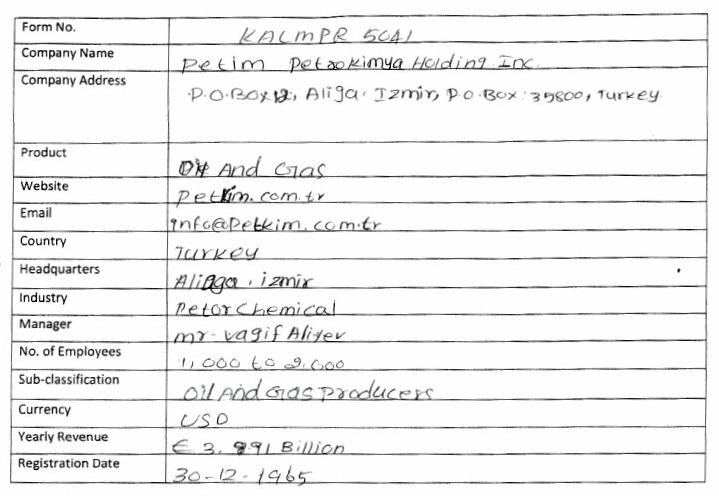 Form No. KALMPR 5041
Company Name Petim Petrokimya Holding Inc.
Company Address P.O.Box 12, Aliga, Izmir, P.O.Box: 35800, Turkey.
Product Oil And Gas
Website Petkim.com.tr
Email info@petkim.com.tr
Country Turkey
Headquarters Aliaga, izmir
Industry PetorChemical
Manager mr. vagif Aliyev
No. of Employees 1,000 to 2,000
Sub-classification Oil And Gas Producers
Currency USD
Yearly Revenue € 3.991 Billion
Registration Date 30-12-1965